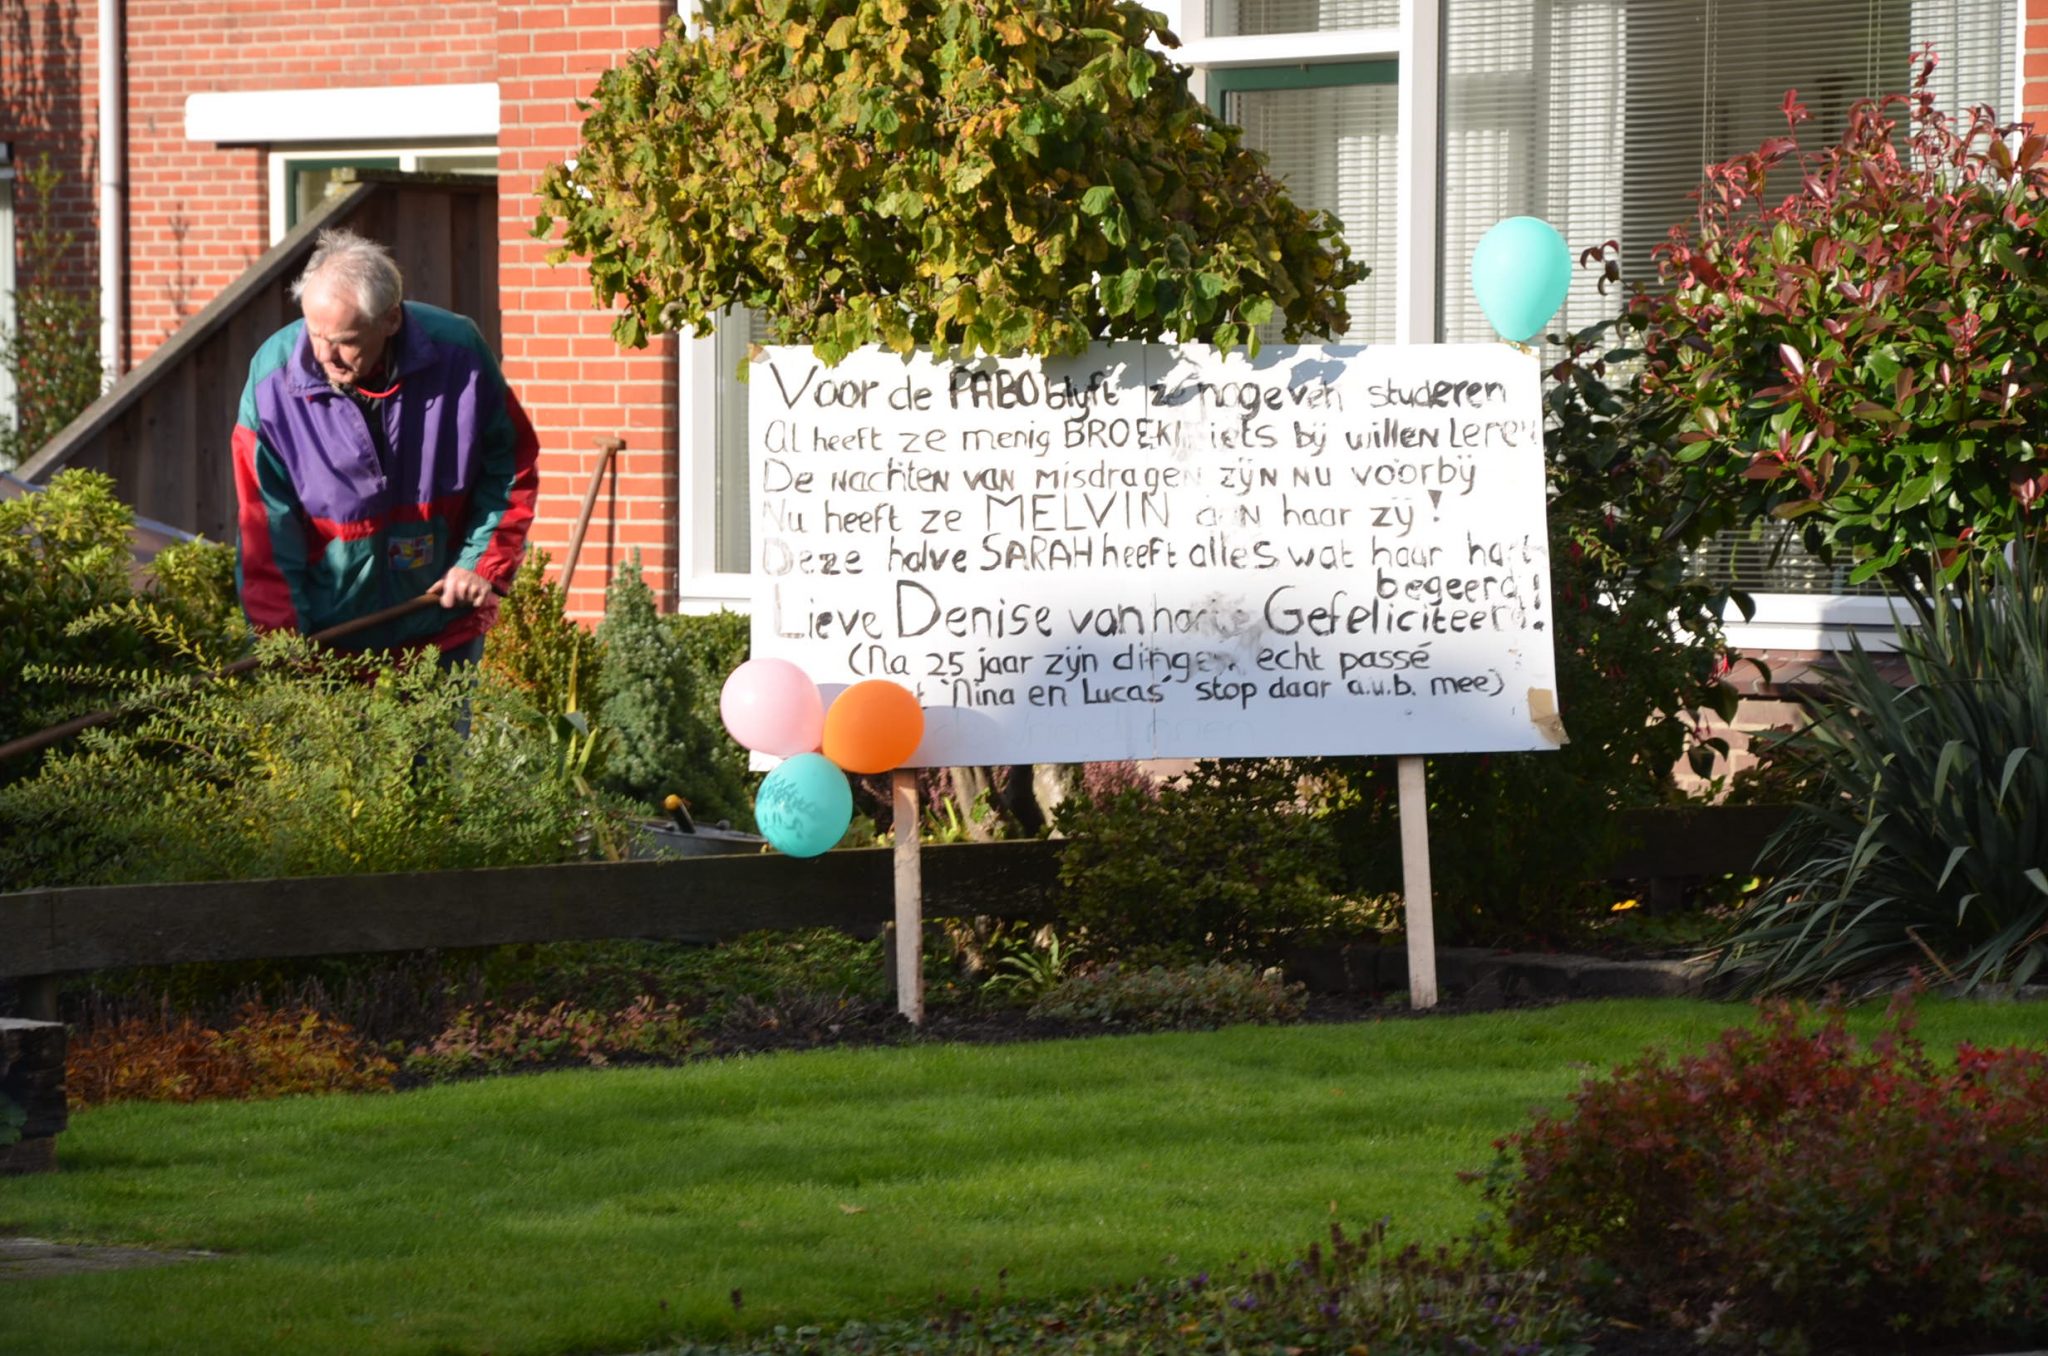 Voor de PABO blijft ze nog even studeren
Al heeft ze menig BROEKIE iets bij willen Leren
De nachten van misdragen zijn nu voorbij
Nu heeft ze MELVIN aan haar zij!
Deze halve SARAH heeft alles wat haar hart
begeerd!
Lieve Denise van harte Gefeliciteerd!
(Na 25 jaar zijn dingen echt passé
'Nina en Lucas' stop daar a.u.b. mee)
vriendinnen